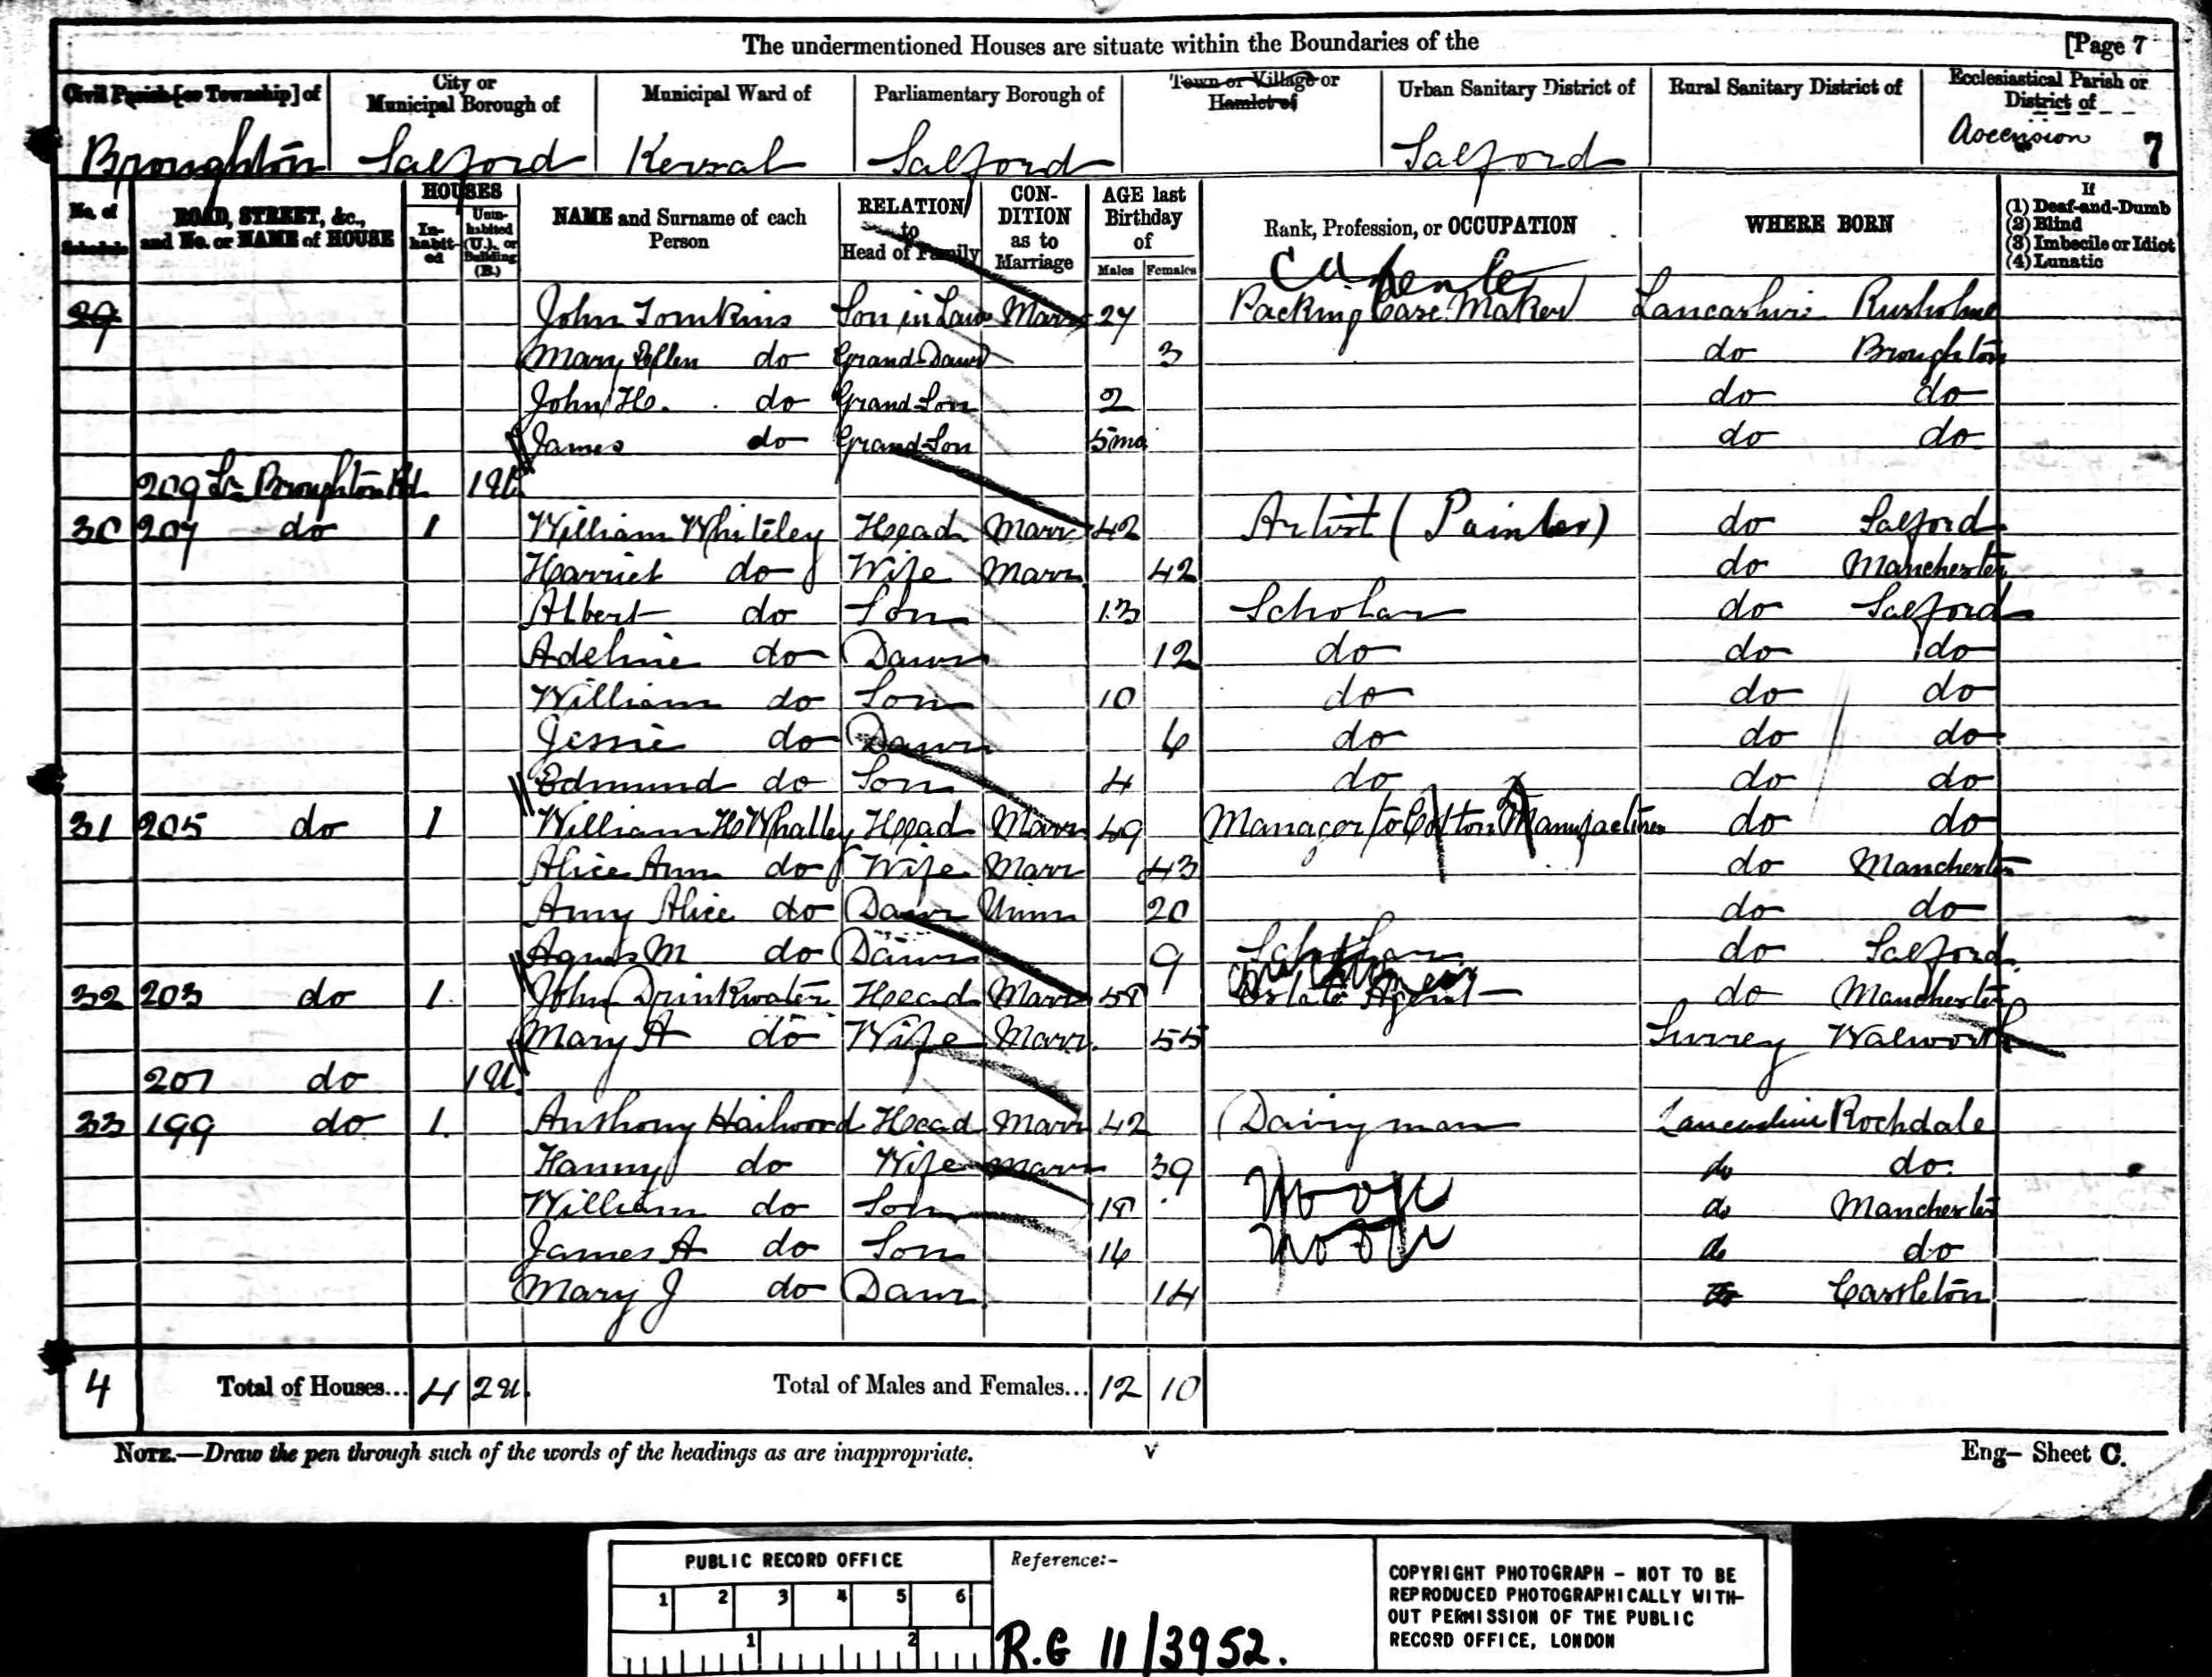 The undermentioned Houses are situate within the Boundaries of the [Page 7
Civil Parish [or Township] of City or Municipal Borough of Municipal Ward of Parliamentary Borough of Town or Village or Hamlet of Urban Sanitary District of Rural Sanitary District of Ecclesiastical Parish or District of
Broughton Salford Kersal Salford Salford Ascension 7
No. of Schedule ROAD, STREET, &c., and No. or NAME of HOUSE HOUSES Inhabited Uninhabited (U.), or Building (B.) NAME and Surname of each Person RELATION to Head of Family CONDITION as to Marriage AGE last Birthday of Males Females Rank, Profession, or OCCUPATION WHERE BORN If (1) Deaf-and-Dumb (2) Blind (3) Imbecile or Idiot (4) Lunatic
Carpenter
29 John Tomkins Son in Law Marr 27 Packing Case Maker Lancashire Rusholme
Mary Ellen do Grand Daur 3 do Broughton
John H. do Grand Son 2 do do
James do Grand Son 5mo do do
209 Lr Broughton Rd 1U
30 207 do 1 William Whiteley Head Marr 42 Artist (Painter) do Salford
Harriet do Wife Marr 42 do Manchester
Albert do Son 13 Scholar do Salford
Adeline do Daur 12 do do do
William do Son 10 do do do
Jessie do Daur 6 do do do
Edmund do Son 4 do do do
31 205 do 1 William H Whalley Head Marr 49 Manager to Cotton Manufacturer do do
Alice Ann do Wife Marr 43 do Manchester
Amy Alice do Daur Unm 20 do do
Agnes M do Daur 9 Scholar do Salford
32 203 do 1 John Drinkwater Head Marr 58 Estate Agent do Manchester
Mary A do Wife Marr. 55 Surrey Walworth
201 do 1U
33 199 do 1 Anthony Hailwood Head Marr 42 Dairyman Lancashire Rochdale
Hanny do Wife Marr 39 do do
William do Son 18 do Manchester
James A do Son 16 do do
Mary J do Daur 14 do Castleton
4 Total of Houses... 4 2U. Total of Males and Females... 12 10
NOTE.—Draw the pen through such of the words of the headings as are inappropriate. Eng— Sheet C.
PUBLIC RECORD OFFICE
1 2 3 4 5 6
1 2
Reference:-
R.G 11/3952.
COPYRIGHT PHOTOGRAPH - NOT TO BE
REPRODUCED PHOTOGRAPHICALLY WITH-
OUT PERMISSION OF THE PUBLIC
RECORD OFFICE, LONDON